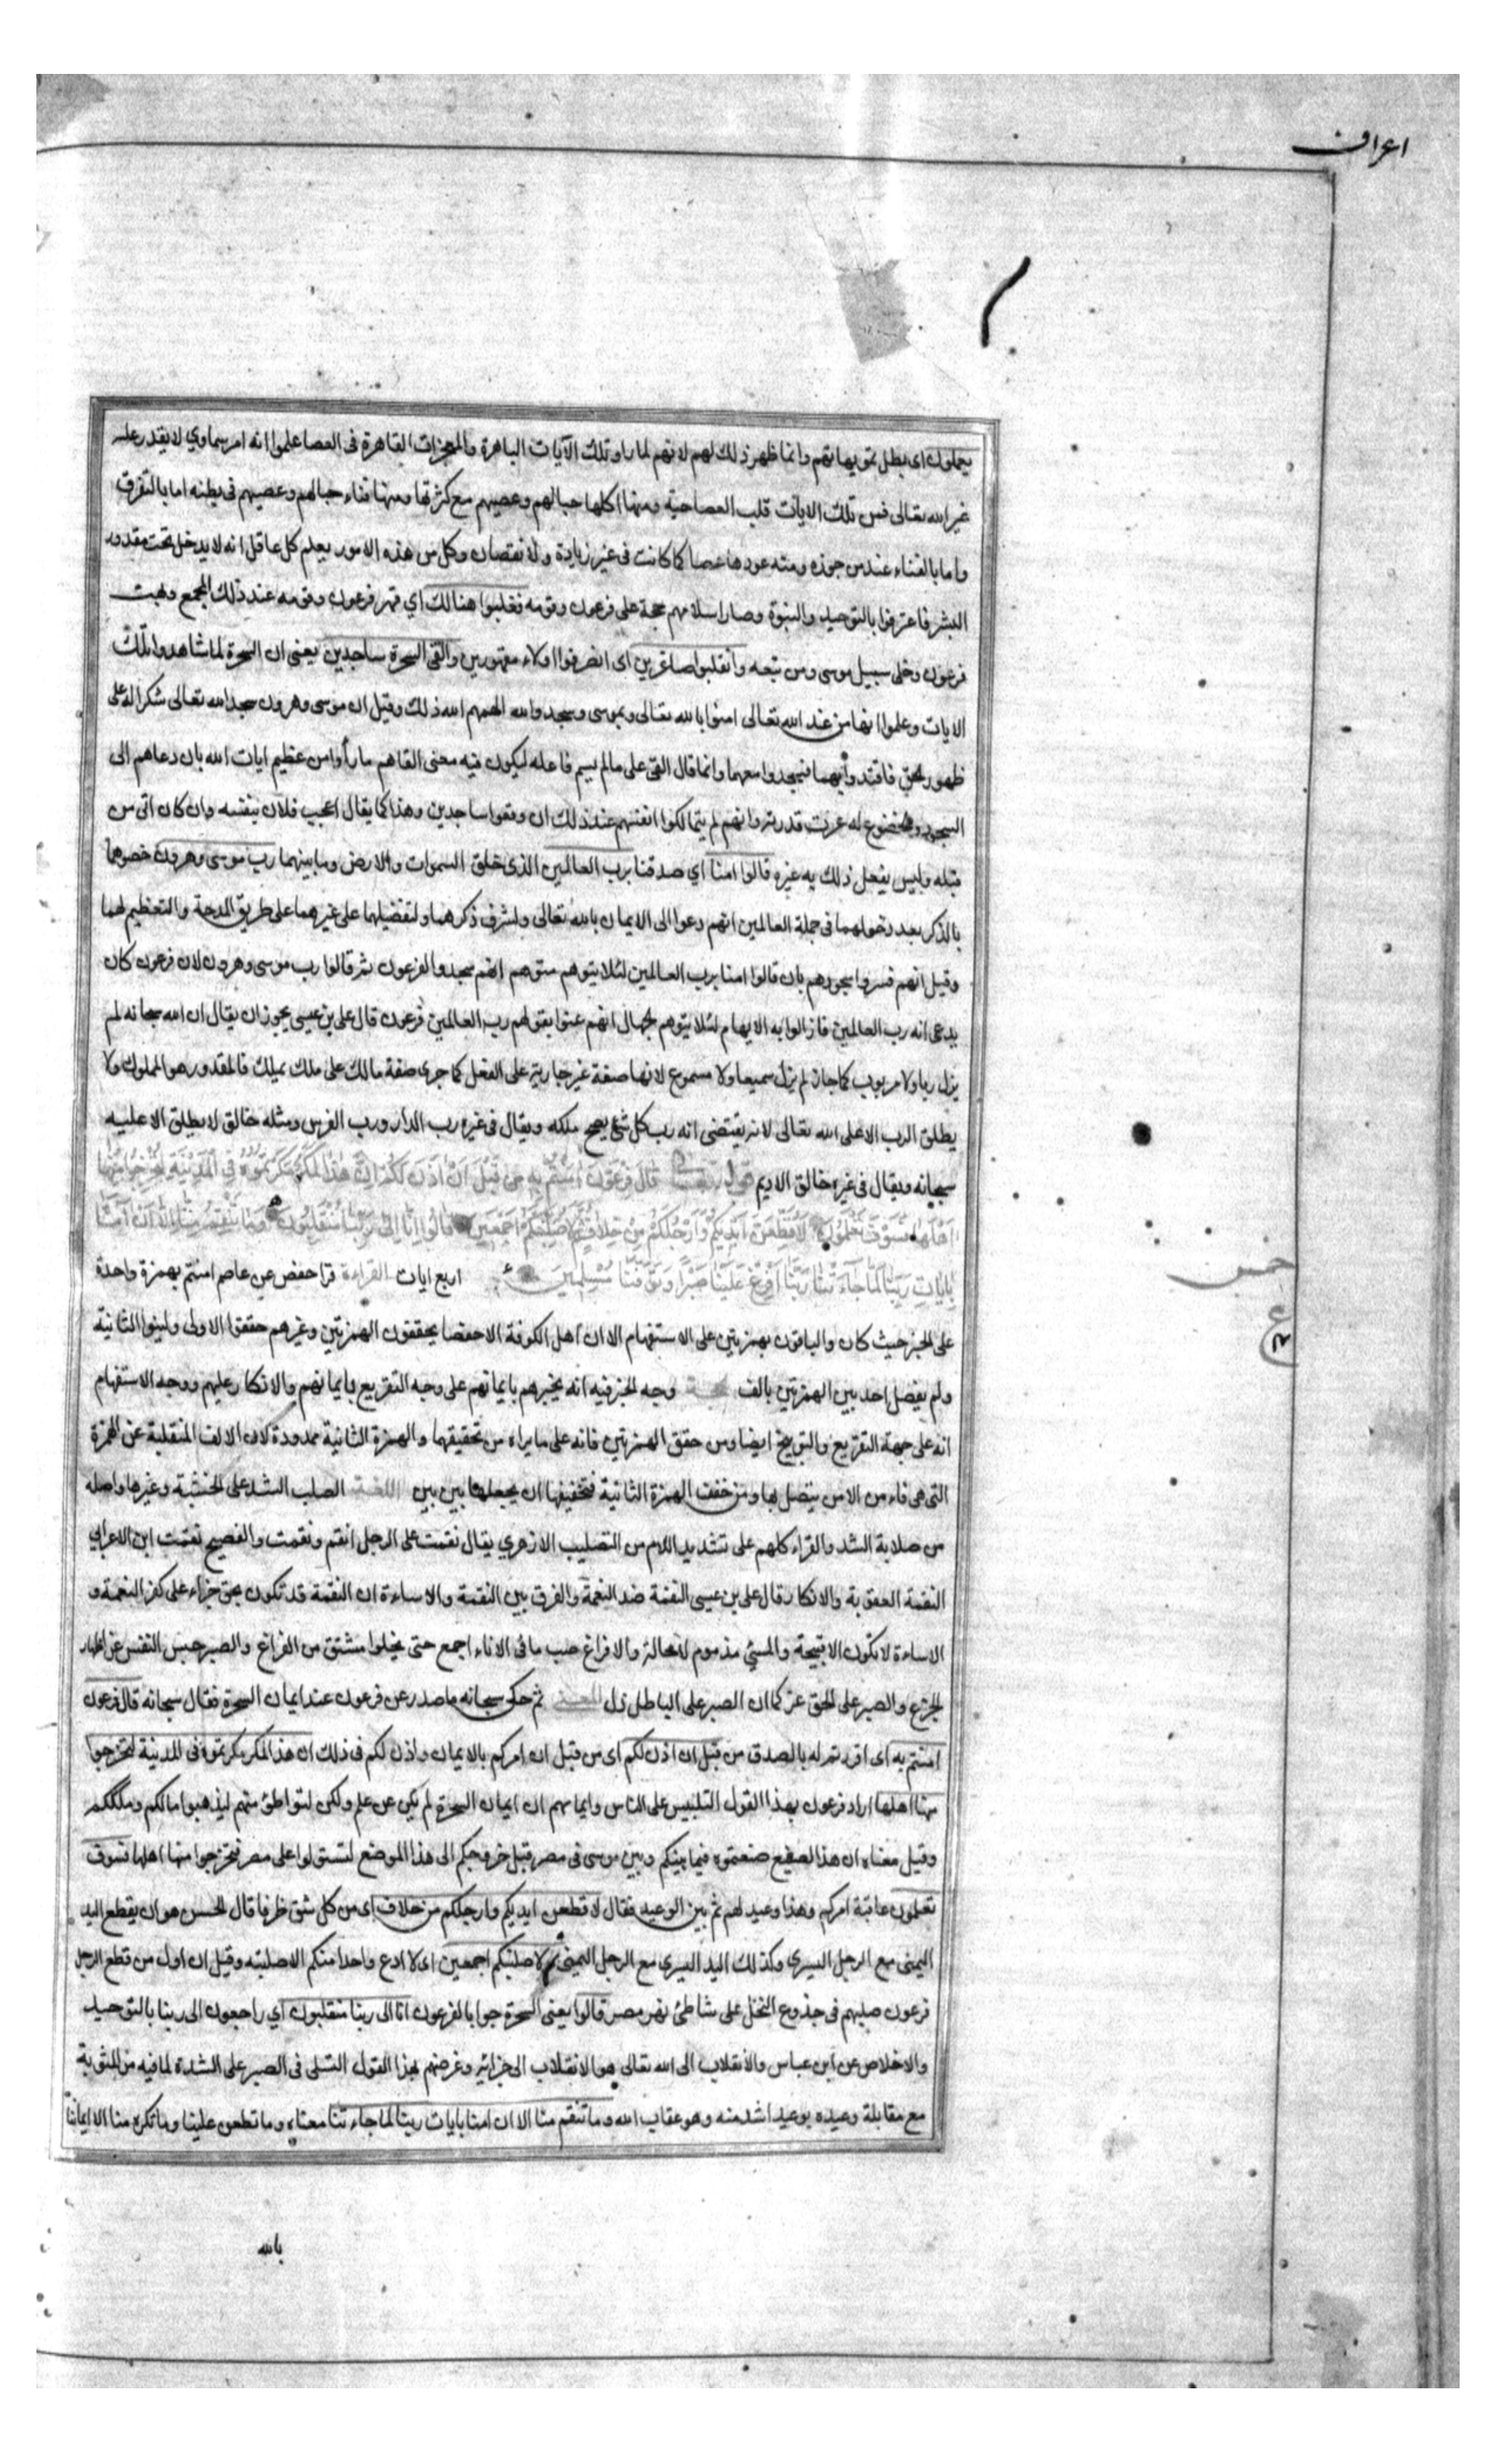 اعراف
يعملون اى بطل تمويهاتهم وانما ظهر ذلك لهم لانهم لما راو تلك الآيات الباهرة والمعجزات القاهرة فى العصا علموا انه امر سماوي لا يقدر عليه
غير الله تعالى فمن تلك الايات قلب العصا حية ومنها اكلها حبالهم وعصيهم مع كثرتها ومنها فناء حبالهم وعصيهم فى بطنه اما بالتفرق
واما بالفناء عند من جوزه ومنه عودها عصا كما كانت فى غير زيادة ولا نقصان وكل من هذه الامور يعلم كل عاقل انه لا يدخل تحت مقدور
البشر فاعترفوا بالتوحيد والنبوة وصار اسلامهم حجة على فرعون وقومه فغلبوا هنالك اي قهر فرعون وقومه عند ذلك المجمع وبهت
فرعون وخلى سبيل موسى ومن تبعه وانقلبوا صاغرين اى انصرفوا اذلاء مقهورين والقى السحرة ساجدين يعنى ان السحرة لما شاهدوا تلك
الايات وعلموا انها من عند الله تعالى امنوا بالله تعالى وبموسى وسجدوا لله الهمهم الله ذلك وقيل ان موسى وهرون سجدا لله تعالى شكرا له على
ظهور الحق فاقتدوا بهما فسجدوا معهما وانما قال القى على ما لم يسم فاعله ليكون فيه معنى القاهم ما رأوا من عظيم ايات الله بان دعاهم الى
السجود والخضوع له عزت قدرته وانهم لم يتمالكوا انفسهم عند ذلك ان وقعوا ساجدين وهذا كما يقال اعجب فلان بنفسه وان كان اتى من
قبله وليس يفعل ذلك به غيره قالوا امنا اي صدقنا برب العالمين الذى خلق السموات والارض وما بينهما رب موسى وهرون خصوهما
بالذكر بعد دخولهما فى جملة العالمين انهم دعوا الى الايمان بالله تعالى ولشرف ذكرهما ولتفضيلهما على غيرهما على طريق المدحة والتعظيم لهما
وقيل انهم فسروا سجودهم بان قالوا امنا برب العالمين لئلا يتوهم متوهم انهم سجدوا لفرعون ثم قالوا رب موسى وهرون لان فرعون كان
يدعى انه رب العالمين فازالوا به الايهام لئلا يتوهم الجهال انهم عنوا بقولهم رب العالمين فرعون قال على بن عيسى يجوز ان يقال ان الله سبحانه لم
يزل ربا ولا مربوب كما جاز لم يزل سميعا ولا مسموع لانها صفة غير جارية على الفعل كما جرى صفة مالك على ملك يملك فالمقدور هو المملوك ولا
يطلق الرب الا على الله تعالى لانه يقتضى انه رب كل شئ يصح ملكه ويقال فى غيره رب الدار ورب الفرس ومثله خالق لا يطلق الا عليه
سبحانه ويقال فى غيره خالق الاديم قوله تعالى قال فرعون امنتم به من قبل ان اذن لكم ان هذا لمكر مكرتموه فى المدينة لتخرجوا منها
اهلها فسوف تعلمون لاقطعن ايديكم وارجلكم من خلاف ثم لاصلبنكم اجمعين قالوا انا الى ربنا منقلبون وما تنقم منا الا ان امنا
بايات ربنا لما جاءتنا ربنا افرغ علينا صبرا وتوفنا مسلمين اربع ايات القراءة قرا حفص عن عاصم امنتم بهمزة واحدة
خمس
ع
على الخبر حيث كان والباقون بهمزتين على الاستفهام الا ان اهل الكوفة الا حفصا يحققون الهمزتين وغيرهم حققوا الاولى ولينوا الثانية
ولم يفصل احد بين الهمزتين بالف الحجة وجه الخبر فيه انه يخبرهم بايمانهم على وجه التقريع بايمانهم والانكار عليهم ووجه الاستفهام
انه على جهة التقريع والتوبيخ ايضا ومن حقق الهمزتين فانه على ما يراه من تحقيقهما والهمزة الثانية ممدودة لان الالف المنقلبة عن الهمزة
التى هى فاء من الامن يتصل بها ومن خفف الهمزة الثانية فتخفيفها ان يجعلها بين بين اللغة الصلب الشد على الخشبة وغيرها واصله
من صلابة الشد والقراء كلهم على تشديد اللام من التصليب الازهري يقال نقمت على الرجل انقم ونقمت والفصيح نقمت ابن الاعرابي
النقمة العقوبة والانكار قال على بن عيسى النقمة ضد النعمة والفرق بين النقمة والاساءة ان النقمة قد تكون بحق جزاء على كفر النعمة و
الاساءة لا تكون الا قبيحة والمسئ مذموم لا محالة والافراغ صب ما فى الاناء اجمع حتى يخلوا مشتق من الفراغ والصبر حبس النفس عن اظهار
الجزع والصبر على الحق عز كما ان الصبر على الباطل ذل المعنى ثم حكى سبحانه ما صدر عن فرعون عند ايمان السحرة فقال سبحانه قال فرعون
امنتم به اى اقررتم له بالصدق من قبل ان اذن لكم اى من قبل ان امركم بالايمان واذن لكم فى ذلك ان هذا لمكر مكرتموه فى المدينة لتخرجوا
منها اهلها اراد فرعون بهذا القول التلبيس على الناس وايهامهم ان ايمان السحرة لم يكن عن علم ولكن لتواطئ منهم ليذهبوا مالكم وملككم
وقيل معناه ان هذا لصنيع صنعتموه فيما بينكم وبين موسى فى مصر قبل خروجكم الى هذا الموضع لتستولوا على مصر فتخرجوا منها اهلها فسوف
تعلمون عاقبة امركم وهذا وعيد لهم ثم بين الوعيد فقال لاقطعن ايديكم وارجلكم من خلاف اى من كل شق طرفا قال الحسن هو ان يقطع اليد
اليمنى مع الرجل اليسرى وكذلك اليد اليسرى مع الرجل اليمنى ثم لاصلبنكم اجمعين اى لا ادع واحدا منكم الا صلبته وقيل ان اول من قطع الرجل
فرعون صلبهم فى جذوع النخل على شاطئ نهر مصر قالوا يعنى السحرة جوابا لفرعون انا الى ربنا منقلبون اي راجعون الى ربنا بالتوحيد
والاخلاص عن ابن عباس والانقلاب الى الله تعالى هو الانقلاب الى جزائه وغرضهم بهذا القول التسلى فى الصبر على الشدة لما فيه من المثوبة
مع مقابلة وعيده بوعيد اشد منه وهو عقاب الله وما تنقم منا الا ان امنا بايات ربنا لما جاءتنا معناه وما تطعن علينا وما تكره منا الا ايماننا
بالله